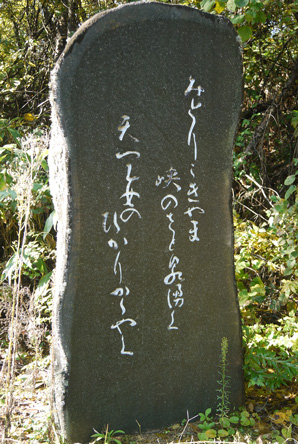 みどりこきやま
峡のさと泉湧く
天つ乙女の
ひかりかゞやく